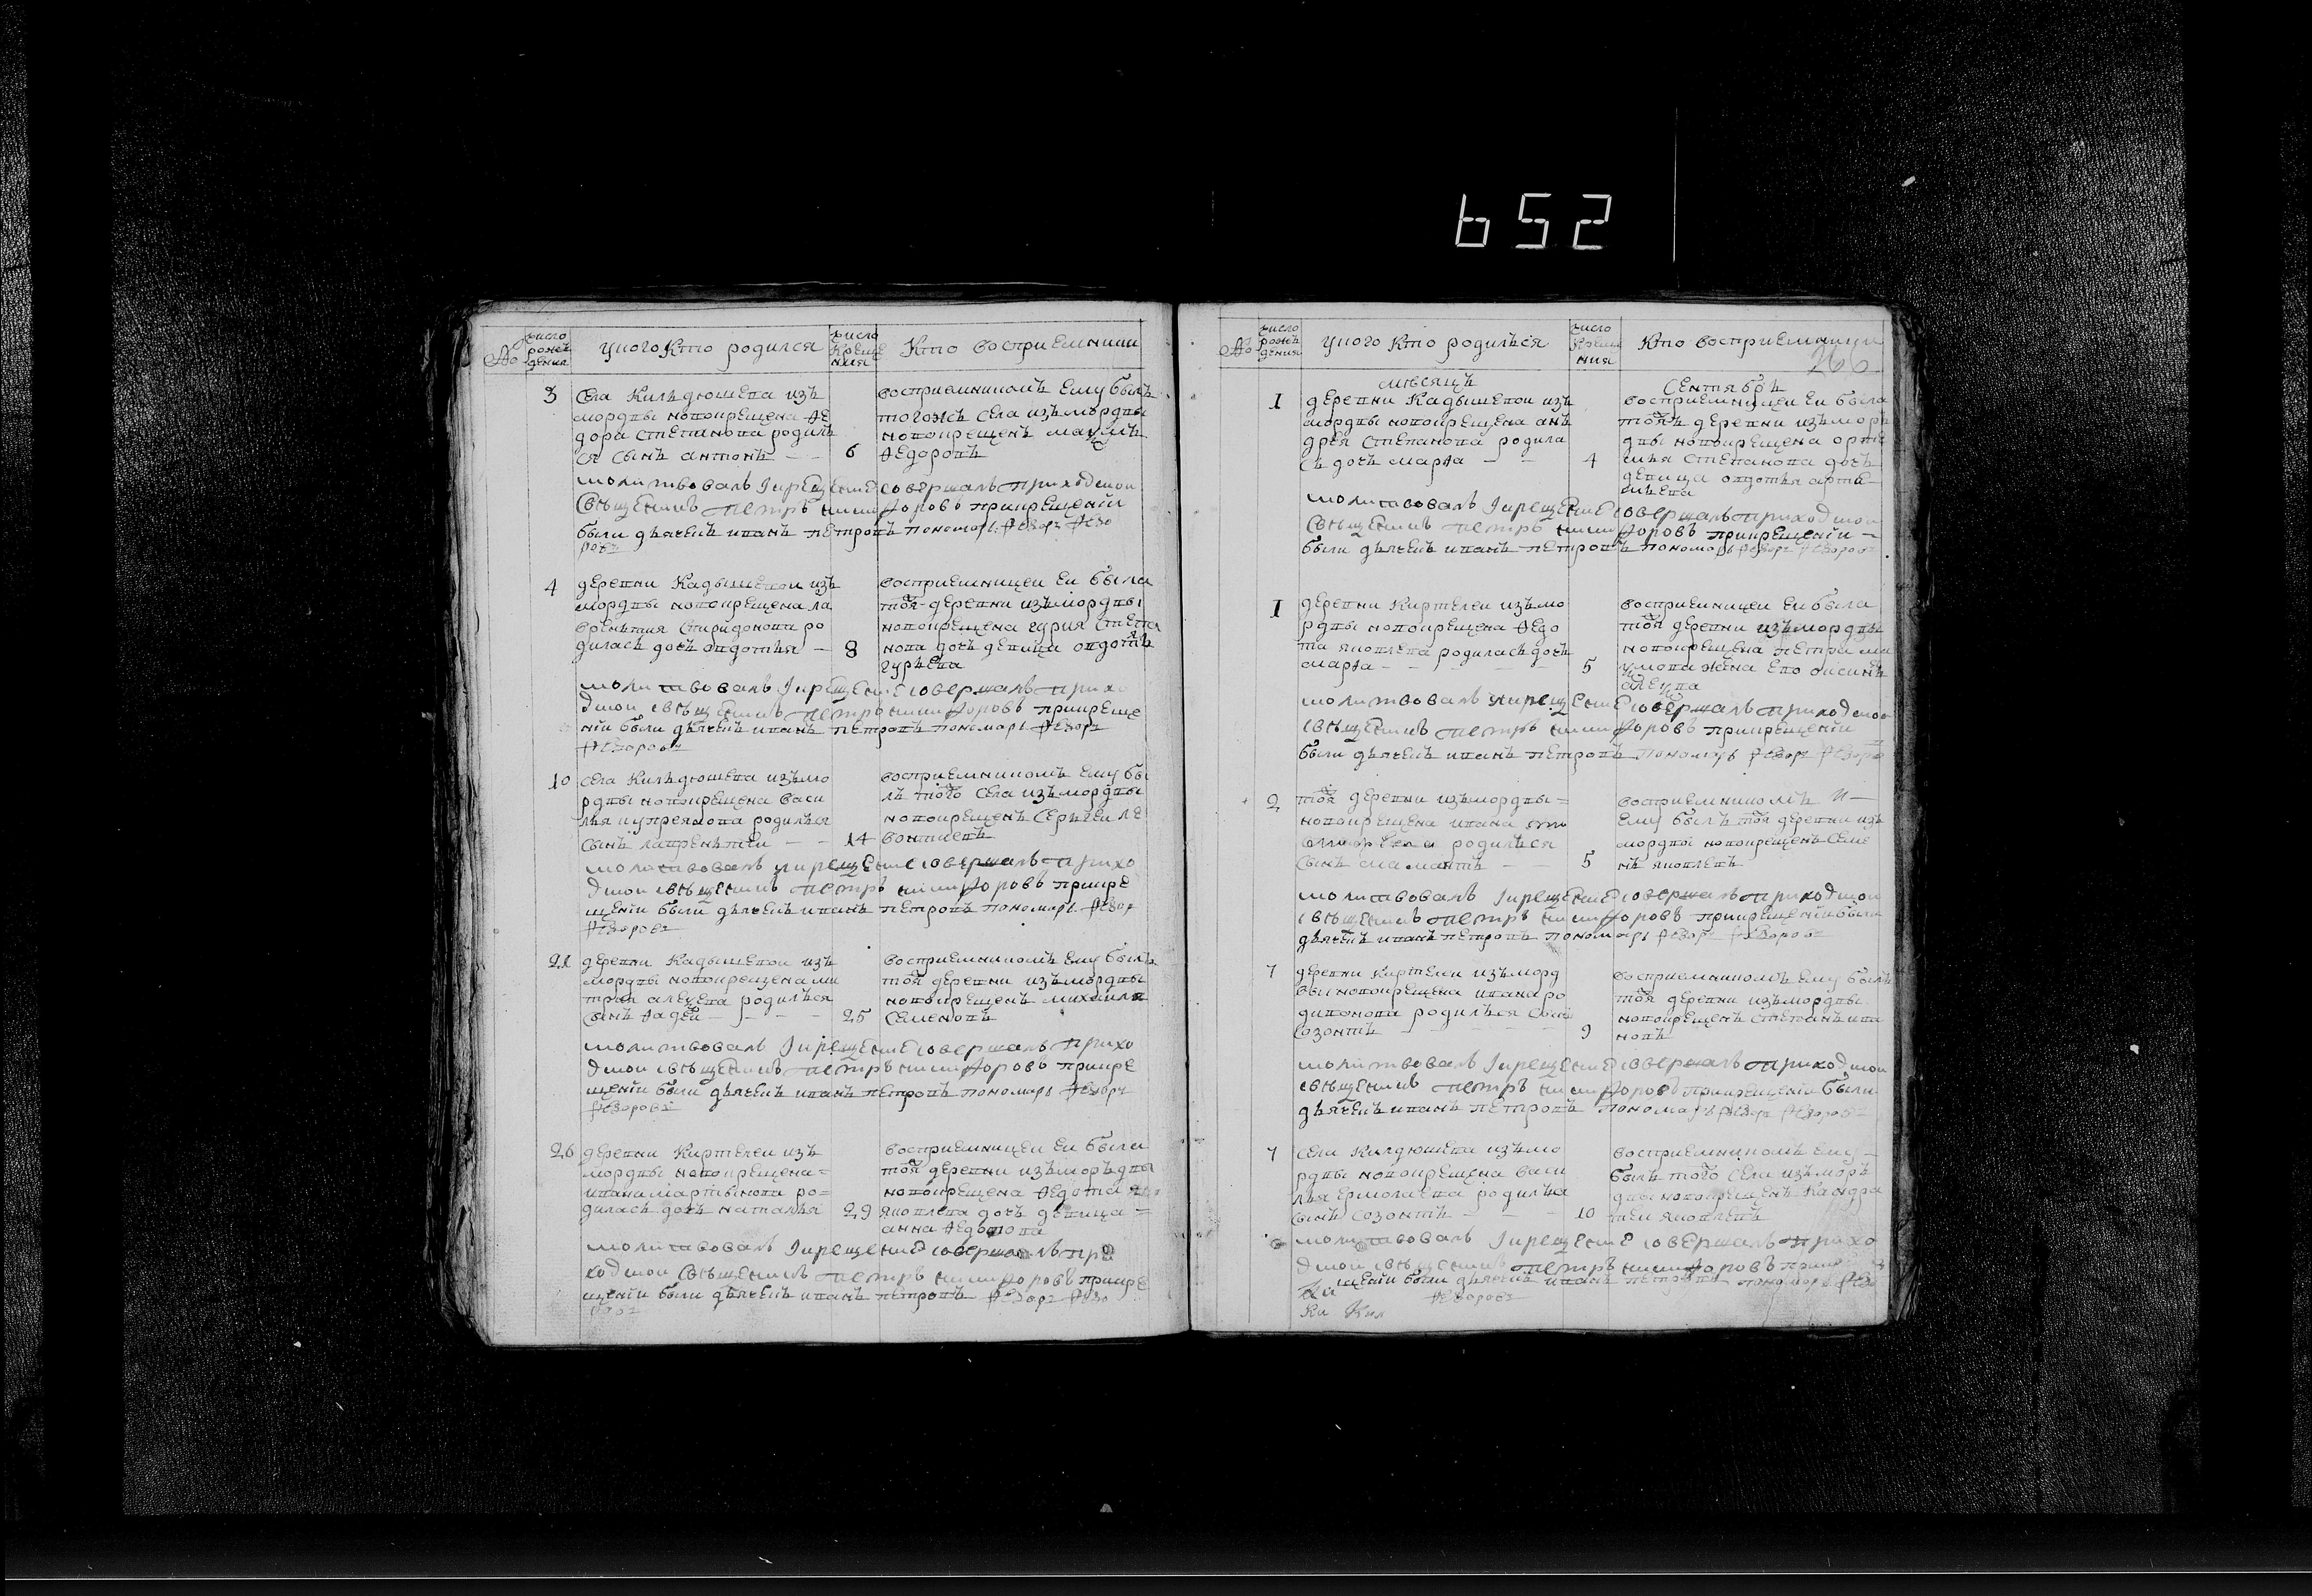 652
№
число рожъдения
у кого кто родился
число крещения
кто восприемники
3
села Килъдюшева изъ
мордвы новокрещена Ѳе
дора Степанова родилъ
ся сынъ антонъ
6
восприемникомъ ему былъ
тогожъ села изъ мордвы
новокрещенъ
Ѳедоровъ
молитвовалъ и крещение совершалъ приходской
священникъ петръ никифоровъ при крещении
были дьячекъ иванъ петровъ пономарь федоръ федо
ровъ
4
деревни Кадышевой изъ
мордвы новокрещена ла
врентия Спиридонова ро
дилась дочь овдотья
8
восприемницей ей была
тоя деревни изъ мордвы
новокрещена гурия степа
нова дочь девица овдотья
гурьева
молитвовалъ и крещение совершалъ прихо
дской священникъ петръ никифоровъ при креще
нии были дьячекъ иванъ петровъ пономарь федоръ
федоровъ
10
села Килъдюшева изъ мо
рдвы новокрещена васи
лья купреянова родился
сынъ лаврентей
14
восприемникомъ ему бы
лъ того села изъ мордвы
новокрещенъ Сергей ле
вонтиевъ
молитвовалъ и крещение совершалъ прихо
дской священникъ петръ никифоровъ при кре
щении были дьячекъ иванъ петровъ пономарь федор
федоровъ
21
деревни Кадышевой изъ
мордвы новокрещена ми
трия родился
сынъ Ѳадей
25
восприемникомъ ему былъ
тоя деревни изъ мордвы
новокрещенъ михаила
Семеновъ
молитвовалъ и крещение совершалъ прихо
дской священникъ петръ никифоровъ при кре
щении были дьячекъ иванъ петровъ пономарь федоръ
федоровъ
26
деревни Киртелей изъ
мордвы новокрещена
ивана мартынова ро
дилась дочь наталья
29
восприемницей ей была
тоя деревни изъ моръдвы
новокрещена Ѳедота
яковлева дочь девица
анна Ѳедотова
молитвовалъ и крещение совершалъ при
ходской священникъ петръ никифоровъ при кре
щении были дьячекъ иванъ петровъ федоръ федо
ровъ
№
число рожъдения
у кого кто родилъся
число крещения
кто восприемники
266
месяцъ Сентябрь
1
деревни Кадышевой изъ
мордвы новокрещена анъ
дрея Степанова родила
сь дочь марѳа
4
восприемницей ей была
тояжъ деревни изъ морь
двы новокрещена орте
мья Степанова дочь
девица овдотья арте
мьева
молитвовалъ и крещение совершалъ приходской
священникъ петръ никифоровъ при крещении
были дьячекъ иванъ петровъ пономарь федоръ федоровъ
1
деревни Киртелей изъ мо
рдвы новокрещена Ѳедо
та яковлева родилась дочь
марѳа
5
восприемницей ей была
тоя деревни изъ мордвы
новокрещена петра
жена ево оксинья
молитвовалъ и крещение совершалъ приходской
священникъ петръ никифоровъ при крещении
были дьячекъ иванъ петровъ пономарь федоръ федоров
2
тоя деревни изъ мордвы
новокрещена ивана
родилься
сынъ мамантъ
5
восприемникомъ
ему былъ тоя деревни изъ
мордвы новокрещенъ Семе
нъ яковлевъ
молитвовалъ и крещение совершалъ приходской
священникъ петръ никифоровъ при крещении были
дьячекъ иванъ петровъ пономарь федоръ федоровъ
7
деревни Киртели изъ морд
вы новокрещена ивана ро
дионова родилься сынъ
созонтъ
9
восприемникомъ ему былъ
тоя деревни изъ мордвы
новокрещенъ Степанъ ива
новъ
молитвовалъ и крещение совершалъ приходской
священникъ петръ никифоровъ при крещении были
дьячекъ иванъ петровъ пономарь федоръ федоровъ
7
села Килдюшева изъ мо
рдвы новокрещена васи
лья ермолаева родилъся
сынъ созонтъ
10
восприемникомъ ему
былъ того села изъ моръ
двы новокрещенъ Кондра
тей яковлевъ
молитвовалъ и крещение совершалъ прихо
дской священникъ петръ никифоровъ при кре
щении были дьячекъ иванъ петровъ пономарь федо
федоровъ